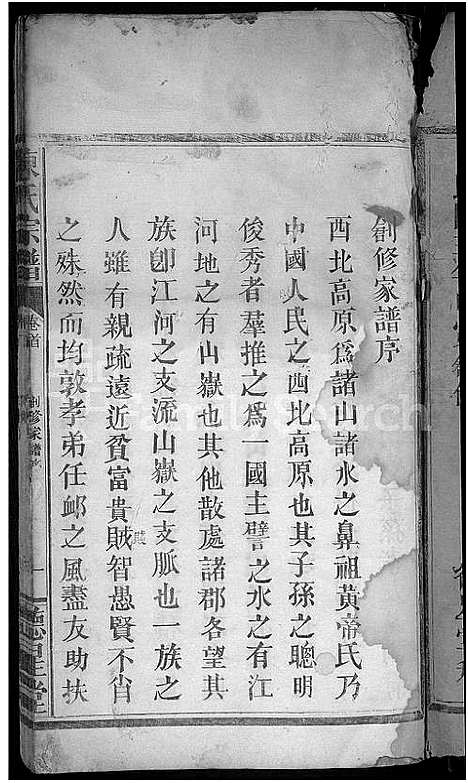 創修家譜序
西北高原爲諸山諸水之鼻祖黃帝氏乃
中國人民之西北高原也其子孫之聰明
俊秀者羣推之爲一國主譬之水之有江
河地之有山嶽也其他散處諸郡各望其
族卽江河之支流山嶽之支脈也一族之
人雖有親疏遠近貧富貴賤智愚賢不肖
之殊然而均敦孝弟任衈之風盡友助扶
陳氏宗譜
卷首
創修家譜序
一
德星堂
FamilySearch